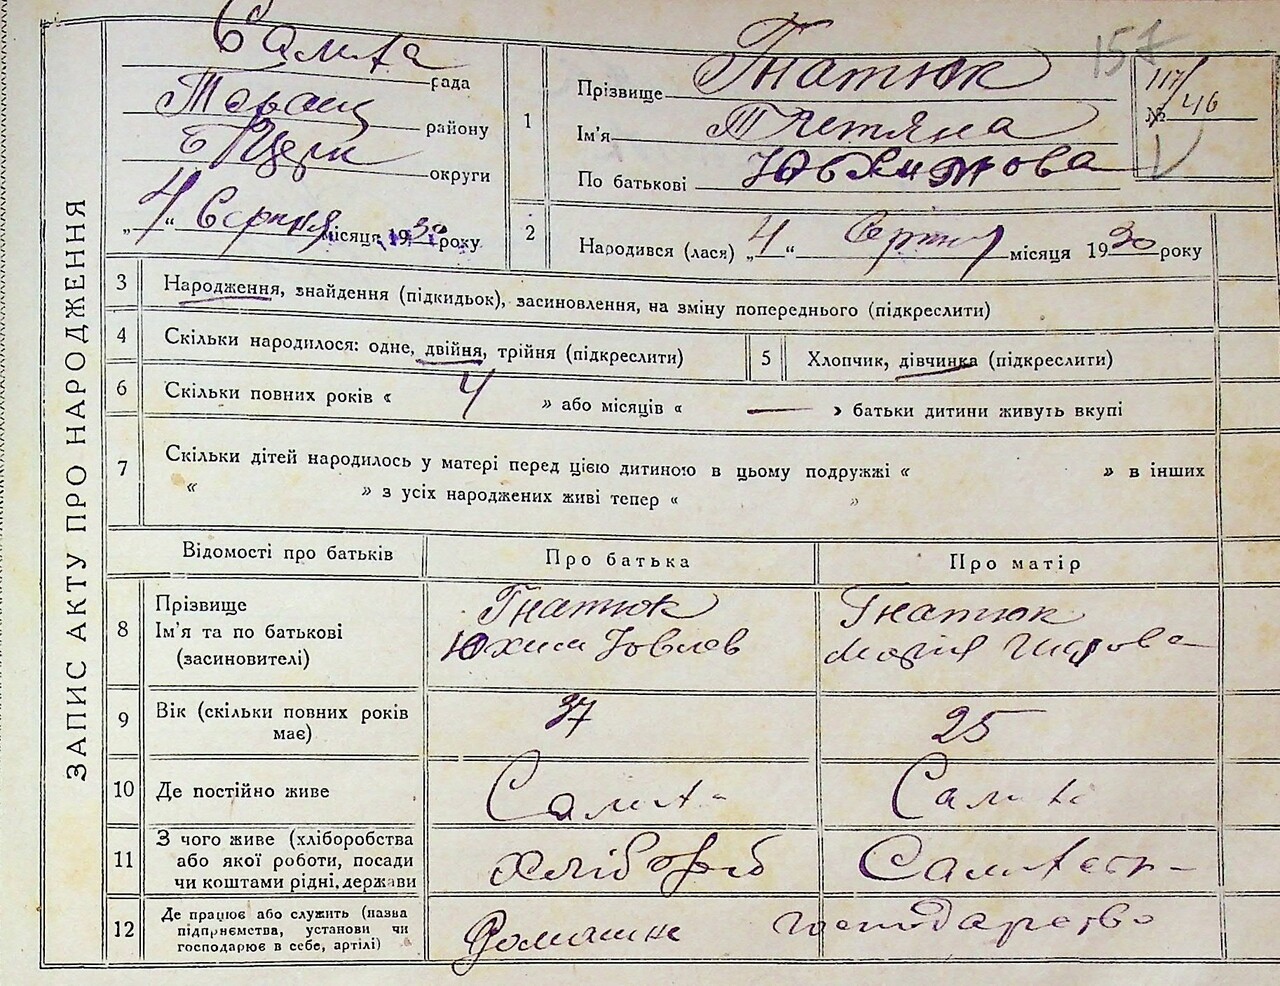 ЗАПИС АКТУ ПРО НАРОДЖЕННЯ
рада
району
округи
„4“ Серпня місяця 1930 року
157
117/46
№
1 Прізвище Гнатюк
Ім'я Тетяна
По батькові Юхимова
2 Народився (лася) „4“ Серпня місяця 1930 року
3 Народження, знайдення (підкидьок), засиновлення, на зміну попереднього (підкреслити)
4 Скільки народилося: одне, двійня, трійня (підкреслити)
5 Хлопчик, дівчинка (підкреслити)
6 Скільки повних років « 4 » або місяців « — » батьки дитини живуть вкупі
7 Скільки дітей народилось у матері перед цією дитиною в цьому подружжі « » в інших
« » з усіх народжених живі тепер « »
Відомості про батьків Про батька Про матір
8 Прізвище Гнатюк Гнатюк
Ім'я та по батькові Юхим Марія
(засиновителі)
9 Вік (скільки повних років 37 25
має)
10 Де постійно живе
11 З чого живе (хліборобства хлібороб
або якої роботи, посади
чи коштами рідні, держави
12 Де працює або служить (назва Домашне господарство
підприємства, установи чи
господарює в себе, артілі)